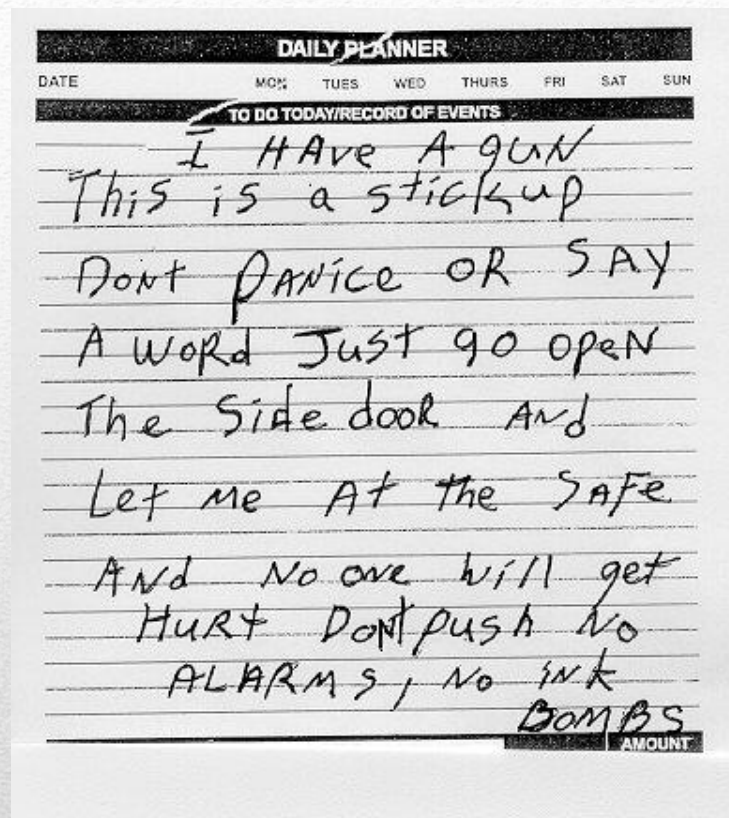 DAILY PLANNER
DATE MON TUES WED THURS FRI SAT SUN
TO DO TODAY/RECORD OF EVENTS
I HAve A guN
This is a stickup
DoNt PANice OR SAY
A WoRd Just go opeN
The Side dooR ANd
Let Me At the SAFe
ANd No one will get
HuRt DoNt push No
ALARMS, No iNk
BoMBS
AMOUNT